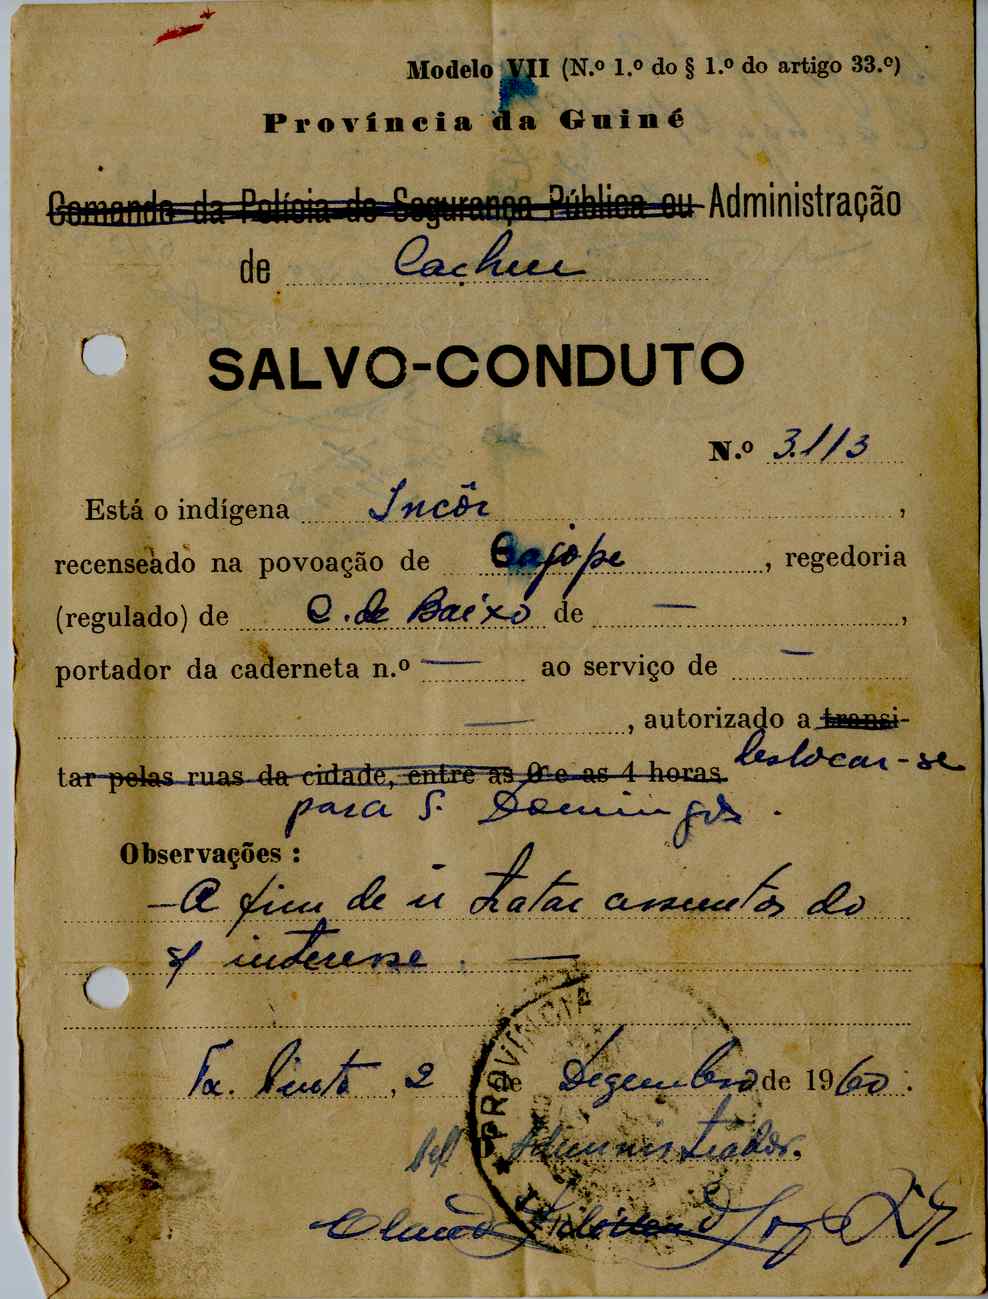 Modelo VII (N.º 1.º do § 1.º do artigo 33.º)
Província da Guiné
Comando da Polícia de Segurança Pública ou Administração
de Cacheu
SALVO-CONDUTO
N.º 3.113
Está o indígena Incôr,
recenseado na povoação de Cajope, regedoria
(regulado) de C. de Baixo de —,
portador da caderneta n.º — ao serviço de —
—, autorizado a transi-
tar pelas ruas da cidade, entre as 0 e as 4 horas. deslocar-se
para S. Domingos.
Observações:
— A fim de ir tratar assuntos do
s/ interesse. —
Tx. Pinto, 2 de Dezembro de 1960.
Administrador.
PROVÍNCIA